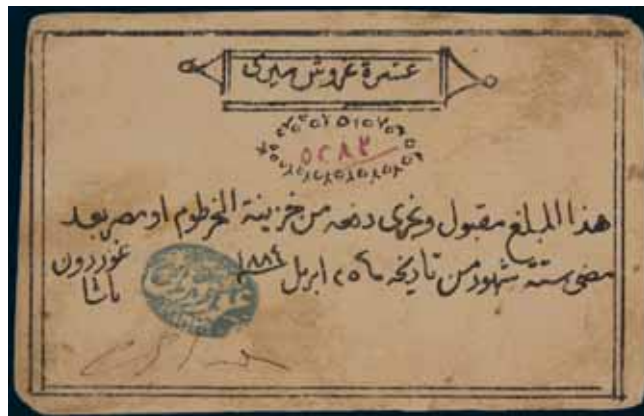 عشرة غروش ميرى
٥٢٨٣
هذا المبلغ مقبول ويجرى دفعه من خزينة الخرطوم او مصر بعد
مضى ستة شهور من تاريخه ٢٥ ابريل ١٨٨٤
غوردون
باشا